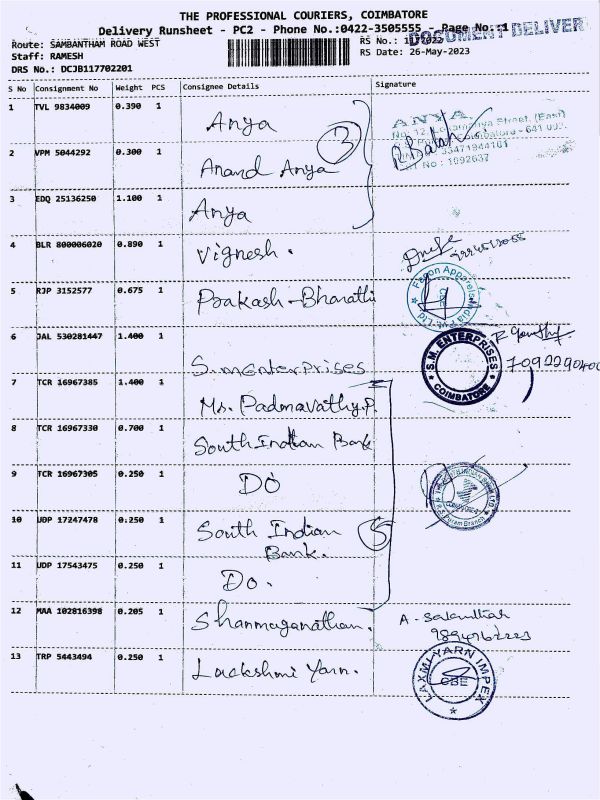 THE PROFESSIONAL COURIERS, COIMBATORE
Delivery Runsheet - PC2 - Phone No.:0422-3505555 - Page No.:1
DOCUMENT DELIVER
Route: SAMBANTHAM ROAD WEST
RS No.:
Staff: RAMESH
RS Date: 26-May-2023
DRS No.: DCJB117702201
S No Consignment No Weight PCS Consignee Details Signature
1 TVL 9834009 0.390 1 Anya
ANYA
3
2 VPM 5044292 0.300 1 Anand Anya
3 EDQ 25136250 1.100 1 Anya
4 BLR 800006020 0.890 1 Vignesh.
5 RJP 3152577 0.675 1 Prakash-Bharathi
6 JAL 530281447 1.400 1 S.m Enterprises
S.M. ENTERPRISES
COIMBATORE
7 TCR 16967385 1.400 1 Ms. Padmavathy.P.
8 TCR 16967330 0.700 1 South Indian Bank
9 TCR 16967305 0.250 1 Do
10 UDP 17247478 0.250 1 South Indian
Bank.
5
11 UDP 17543475 0.250 1 Do.
12 MAA 102816398 0.205 1 Shanmuganathan.
13 TRP 5443494 0.250 1 Lackshmi Yarn.
LAXMI YARN IMPEX
CBE